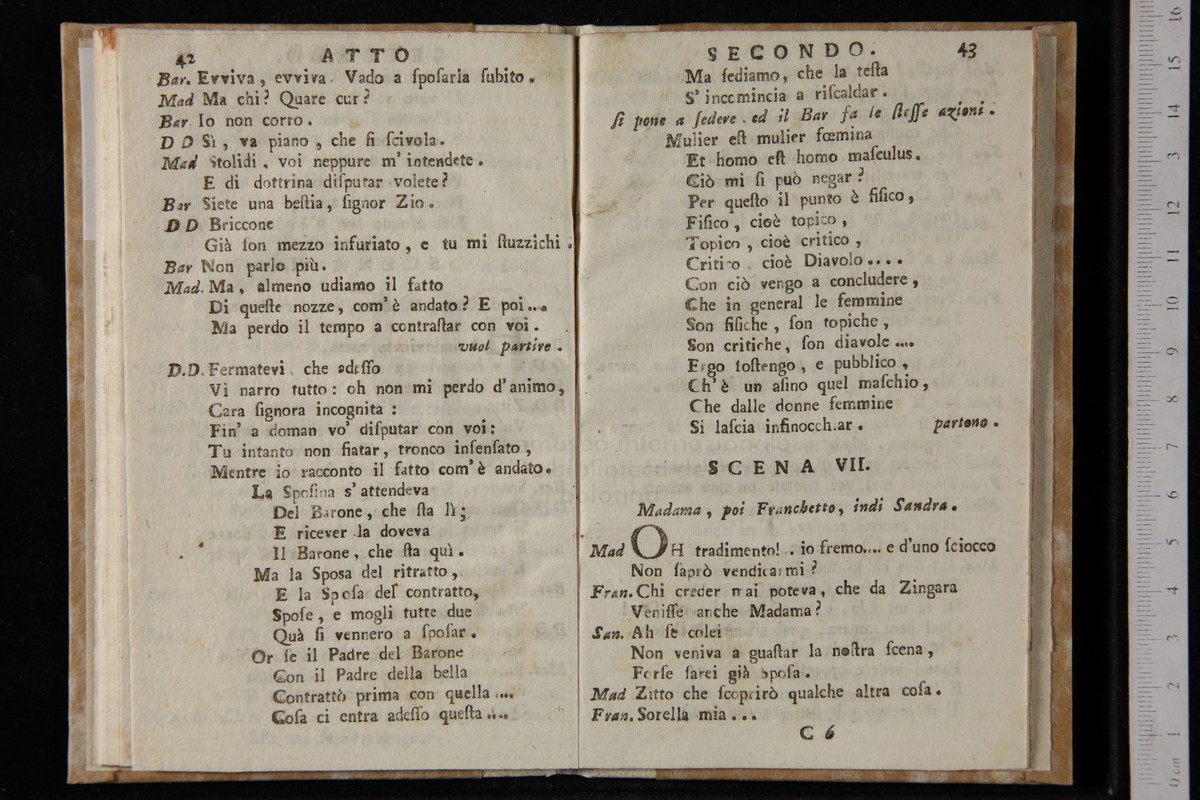 42 ATTO
Bar. Evviva, evviva. Vado a ſpoſarla ſubito.
Mad Ma chi? Quare cur?
Bar Io non corro.
D D Sì, va piano, che ſi ſcivola.
Mad Stolidi, voi neppure m' intendete.
E di dottrina diſputar volete?
Bar Siete una beſtia, ſignor Zio.
D D Briccone
Già ſon mezzo infuriato, e tu mi ſtuzzichi.
Bar Non parlo più.
Mad. Ma, almeno udiamo il fatto
Di queſte nozze, com' è andato? E poi...
Ma perdo il tempo a contraſtar con voi.
vuol partire.
D.D. Fermatevi, che adeſſo
Vi narro tutto: oh non mi perdo d' animo,
Cara ſignora incognita:
Fin' a doman vo' diſputar con voi:
Tu intanto non fiatar, tronco inſenſato,
Mentre io racconto il fatto com' è andato.
La Spoſina s' attendeva
Del Barone, che ſta lì;
E ricever la doveva
Il Barone, che ſta quì.
Ma la Sposa del ritratto,
E la Spoſa del contratto,
Spoſe, e mogli tutte due
Quà ſi vennero a ſpoſar.
Or ſe il Padre del Barone
Con il Padre della bella
Contrattò prima con quella....
Coſa ci entra adeſſo queſta....
SECONDO. 43
Ma ſediamo, che la teſta
S' incomincia a riſcaldar.
ſi pone a ſedere. ed il Bar fa le ſteſſe azioni.
Mulier eſt mulier fœmina
Et homo eſt homo maſculus.
Ciò mi ſi può negar?
Per queſto il punto è fiſico,
Fiſico, cioè topico,
Topico, cioè critico,
Critico, cioè Diavolo....
Con ciò vengo a concludere,
Che in general le femmine
Son fiſiche, ſon topiche,
Son critiche, ſon diavole....
Ergo ſoſtengo, e pubblico,
Ch' è un aſino quel maſchio,
Che dalle donne femmine
Si laſcia infinocchiar. partono.
SCENA VII.
Madama, poi Franchetto, indi Sandra.
Mad OH tradimento!.. io fremo.... e d'uno ſciocco
Non ſaprò vendicarmi?
Fran. Chi creder mai poteva, che da Zingara
Veniſſe anche Madama?
San. Ah ſe colei
Non veniva a guaſtar la noſtra ſcena,
Forſe ſarei già Spoſa.
Mad Zitto che ſcoprirò qualche altra coſa.
Fran. Sorella mia...
C 6